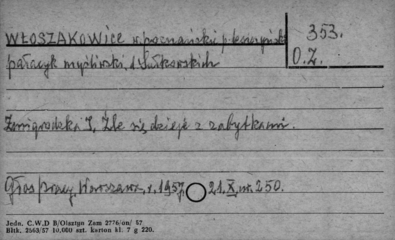 WŁOSZAKOWICE w poznański p. leszyński
353.
pałacyk myśliwski, d. Sułkowskich
O.Z.
Żmigrodzka J, Źle się dzieje z zabytkami.
Głos pracy, Warszawa, r. 1957, 21.X, nr. 250.
Jedn. C.W.D B/Olsztyn Zam 2776/on/ 57
Bltk. 2563/57 10,000 szt. karton kl. 7 g 220.